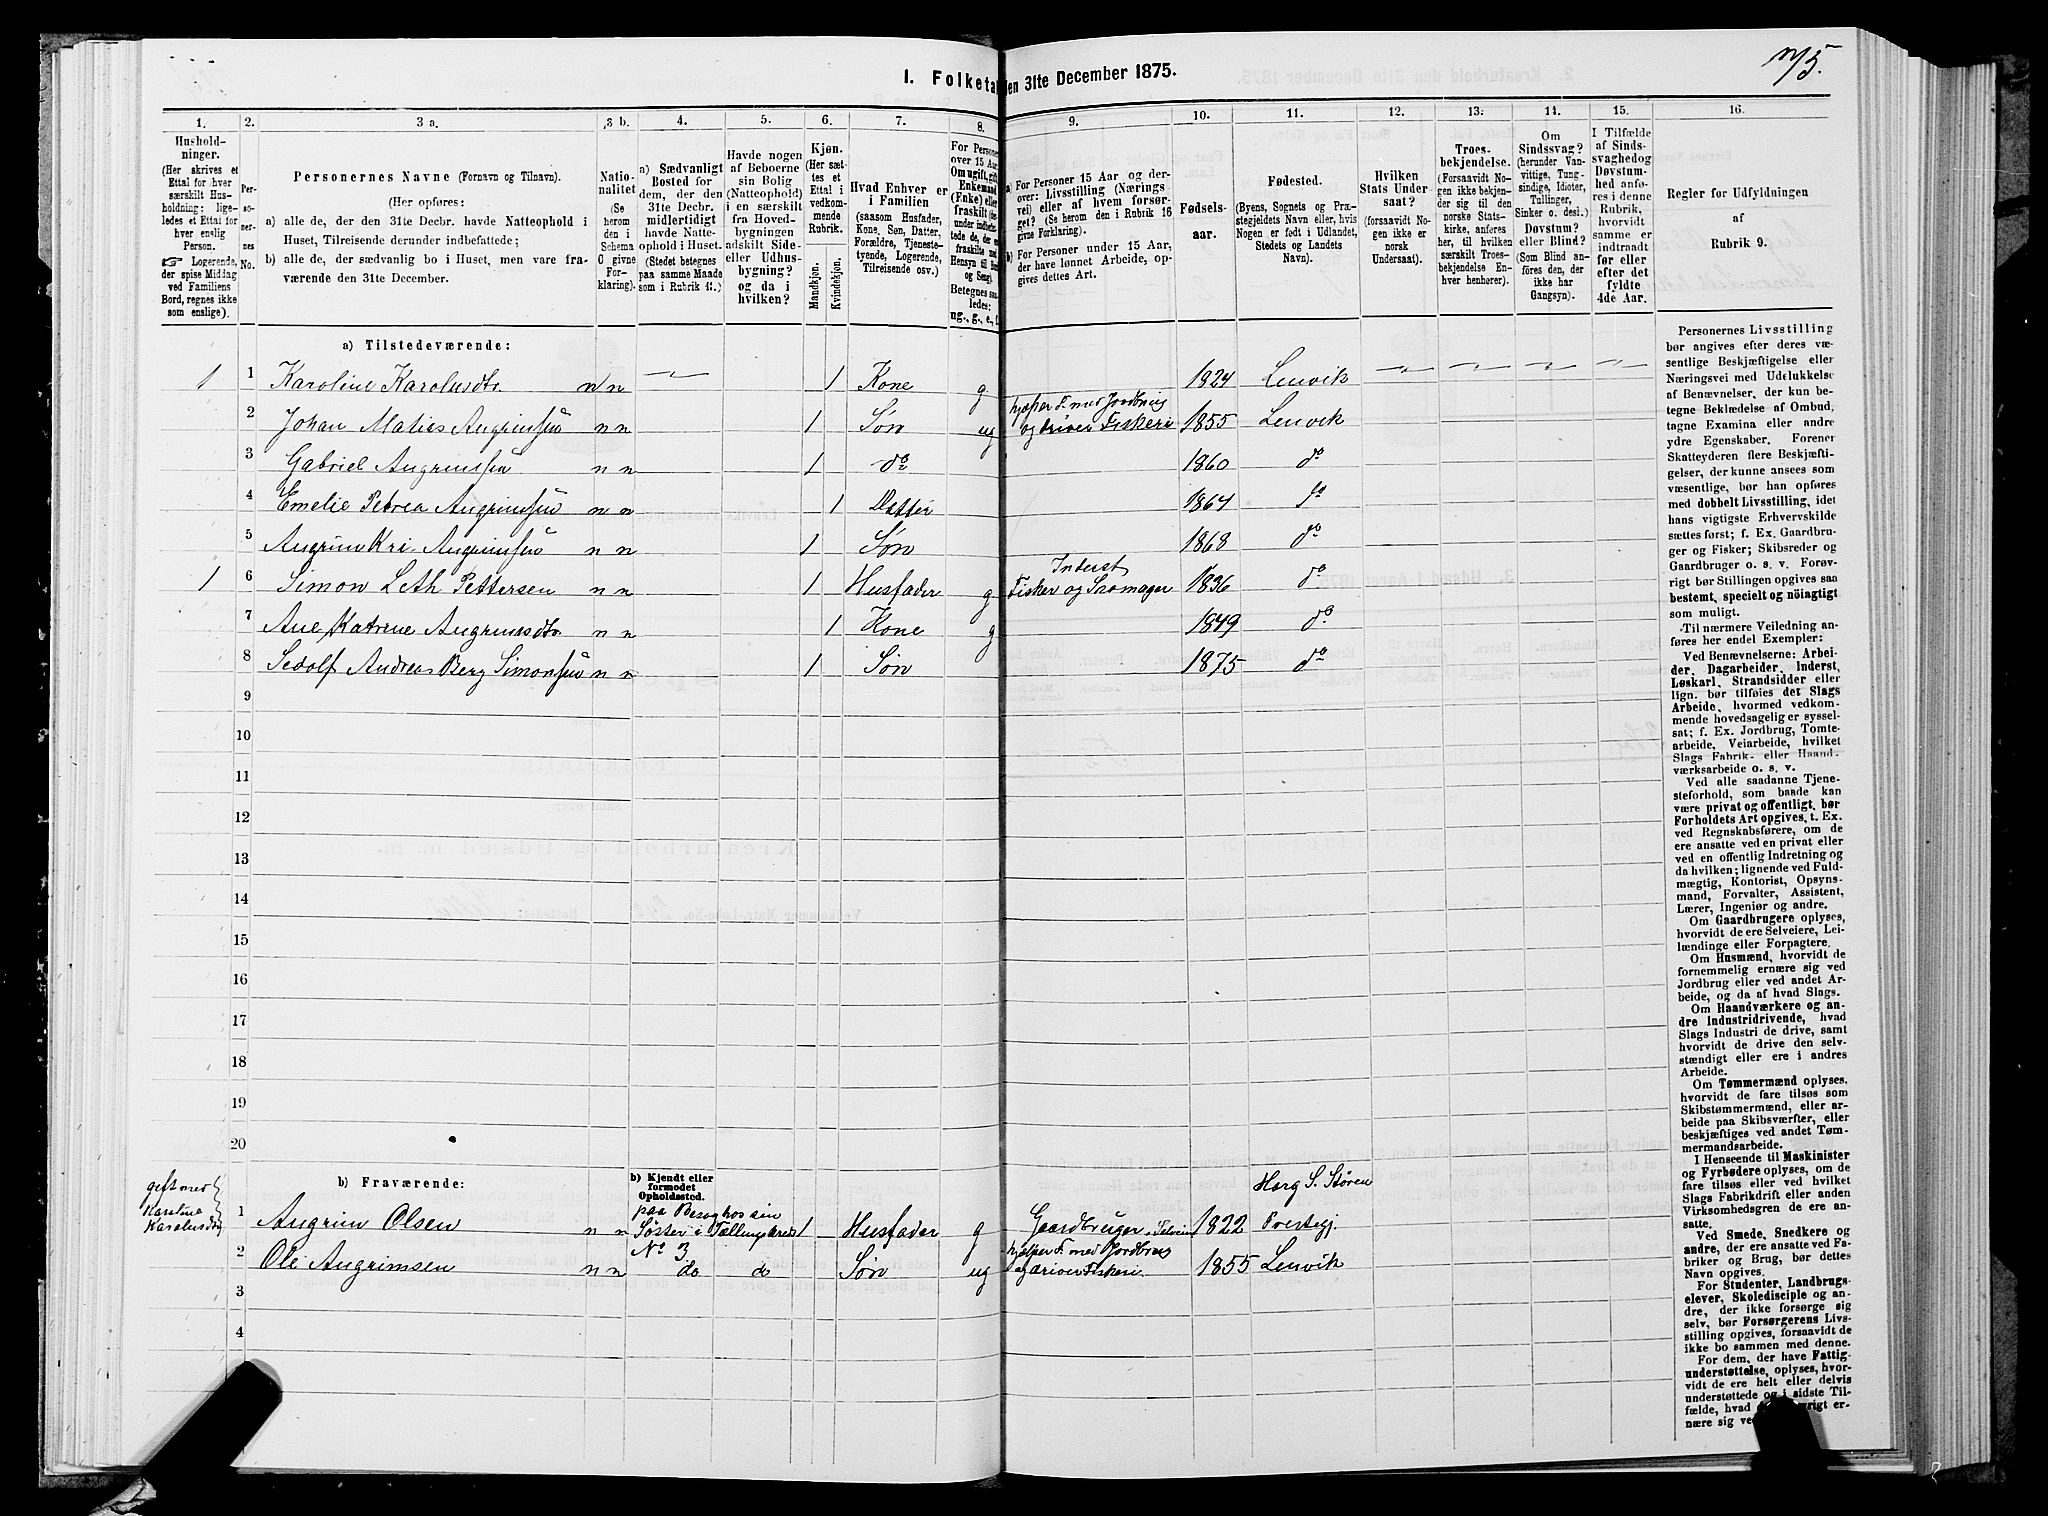 I. Folketal den 31te December 1875.
1. 2. 3 a. 3 b. 4. 5. 6. 7. 8. 9. 10. 11. 12. 13. 14. 15. 16.
Husholdninger. (Her skrives et Ettal for hver særskilt Husholdning: ligeledes et Ettal for hver enslig Person. ☞ Logerende, der spise Middag ved Familiens Bord, regnes ikke som enslige).
Personernes No.
Personernes Navne (Fornavn og Tilnavn).
(Her opføres:
a) alle de, der den 31te Decbr. havde Natteophold i Huset, Tilreisende derunder indbefattede;
b) alle de, der sædvanlig bo i Huset, men vare fraværende den 31te December.
Nationalitet (Se herom den i Schema C givne Forklaring).
a) Sædvanligt Bosted for dem, der den 31te Decbr. midlertidigt havde Natteophold i Huset. (Stedet betegnes paa samme Maade som i Rubrik 11.)
Havde nogen af Beboerne sin Bolig (Natteophold) i en særskilt fra Hovedbygningen adskilt Side- eller Udhusbygning? og da i hvilken?
Kjøn. (Her sættes et Ettal i vedkommende Rubrik. Mandkjøn. Kvindekjøn.
Hvad Enhver er i Familien (saasom Husfader, Kone, Søn, Datter, Forældre, Tjenestetyende, Logerende, Tilreisende osv.)
For Personer over 15 Aar: Om ugift, gift, Enkemand (Enke) eller fraskilt
Betegnes saaledes: ug., g., e., f.
a) For Personer 15 Aar og derover: Livsstilling (Næringsvei) eller af hvem forsørget? (Se herom den i Rubrik 16 givne Forklaring).
b) For Personer under 15 Aar, der have lønnet Arbeide, opgives dettes Art.
Fødselsaar.
Fødested. (Byens, Sognets og Præstegjeldets Navn eller, hvis Nogen er født i Udlandet, Stedets og Landets Navn).
Hvilken Stats Undersaat? (forsaavidt Nogen ikke er norsk Undersaat).
Troesbekjendelse. (Forsaavidt Nogen ikke bekjender sig til den norske Statskirke, anføres her, til hvilken særskilt Troesbekjendelse Enhver henhører).
Om Sindssvag? (herunder Vanvittige, Tungsindige, Idioter, Tullinger, Sinker o. desl.) Døvstum? eller Blind? (Som Blind anføres den, der ikke har Gangsyn).
I Tilfælde af Sindssvaghed og Døvstumhed anføres i denne Rubrik, hvorvidt samme er indtraadt før eller efter det fyldte 4de Aar.
Regler for Udfyldningen af Rubrik 9.
a) Tilstedeværende:
1 1 Karoline Karolusdtr. n n 1 Kone g 1824 Lenvik
2 Johan Matias Angrimsen n n 1 Søn ug hjælper F. med Jordbrug og driver Fiskeri 1855 Lenvik
3 Gabriel Angrimsen n n 1 do 1860 do
4 Emelie Petrea Angrimsen n n 1 Datter 1864 do
5 Angrim Kri. Angrimsen n n 1 Søn 1868 do
1 6 Simon Leth Pettersen n n 1 Husfader g Inderst Fisker og Skomager 1836 do
7 Ane Katrine Angrimsdtr n n 1 Kone g 1849 do
8 Sedolf Andreas Berg Simonsen n n 1 Søn 1875 do
9
10
11
12
13
14
15
16
17
18
19
20
b) Fraværende:
b) Kjendt eller formodet Opholdssted.
gift med Karoline Karolusdtr
1 Angrim Olsen n n paa Besøg hos sin Søster i Tællingskreds No 3 1 Husfader g Gaardbruger, 1822 Horg S. Støren Prestegj.
2 Ole Angrimsen n n do do Søn ug hjælper F. med Jordbrug og driver Fiskeri 1855 Lenvik
3
4
Personernes Livsstilling
bør angives efter deres væsentlige
Beskjæftigelse eller
Næringsvei med Udelukkelse
af Benævnelser, der kun
betegne Beklædelse af Ombud,
tagne Examina eller andre
ydre Egenskaber. Forener
Skatteyderen flere Beskjæftigelser,
der kunne ansees som
væsentlige, bør han opføres
med dobbelt Livsstilling, idet
hans vigtigste Erhvervskilde
sættes først; f. Ex. Gaardbruger
og Fisker; Skibsreder og
Gaardbruger o. s. v. Forøvrigt
bør Stillingen opgives saa
bestemt, specielt og nöiagtigt
som muligt.
Til nærmere Veiledning anføres
her endel Exempler:
Ved Benævnelserne: Arbeider,
Dagarbeider, Inderst,
Løskarl, Strandsidder eller
lign. bør tilføies det Slags
Arbeide, hvormed vedkommende
hovedsagelig er sysselsat;
f. Ex. Jordbrug, Tomtearbeide,
Veiarbeide, hvilket
Slags Fabrik- eller Haandværksarbeide
o. s. v.
Ved alle saadanne Tjenesteforhold,
som baade kan
være privat og offentligt, bør
Forholdets Art opgives, t. Ex.
ved Regnskabsførere, om de
ere ansatte ved en privat eller
ved en offentlig Indretning og
da hvilken; lignende ved Fuldmægtig,
Kontorist, Opsynsmand,
Forvalter, Assistent,
Lærer, Ingeniør og andre.
Om Gaardbrugere oplyses,
hvorvidt de ere Selveiere, Leilændinge
eller Forpagtere.
Om Husmænd, hvorvidt de
fornemmelig ernære sig ved
Jordbrug eller ved andet Arbeide,
og da af hvad Slags.
Om Haandværkere og andre
Industridrivende, hvad
Slags Industri de drive, samt
hvorvidt de drive den selvstændigt
eller ere i andres
Arbeide.
Om Tømmermænd oplyses,
hvorvidt de fare tilsøs som
Skibstømmermænd, eller arbeide
paa Skibsværfter, eller
beskjæftiges ved andet Tømmermandsarbeide.
I Henseende til Maskinister
og Fyrbødere oplyses, om de
fare tilsøs eller ved hvilket
Slags Fabrikdrift eller anden
Virksomhedsgren de ere ansatte.
Ved Smede, Snedkere og
andre, der ere ansatte ved Fabriker
og Brug, bør dettes
Navn opgives.
For Studenter, Landbrugselever,
Skoledisciple og andre,
der ikke forsørge sig
selv, bør Forsørgerens Livsstilling
opgives, forsaavidt de
ikke bo sammen med denne.
For dem, der have Fattigunderstøttelse,
oplyses, hvorvidt
de ere helt eller delvis
understøttede og i sidste Tilfælde,
hvad